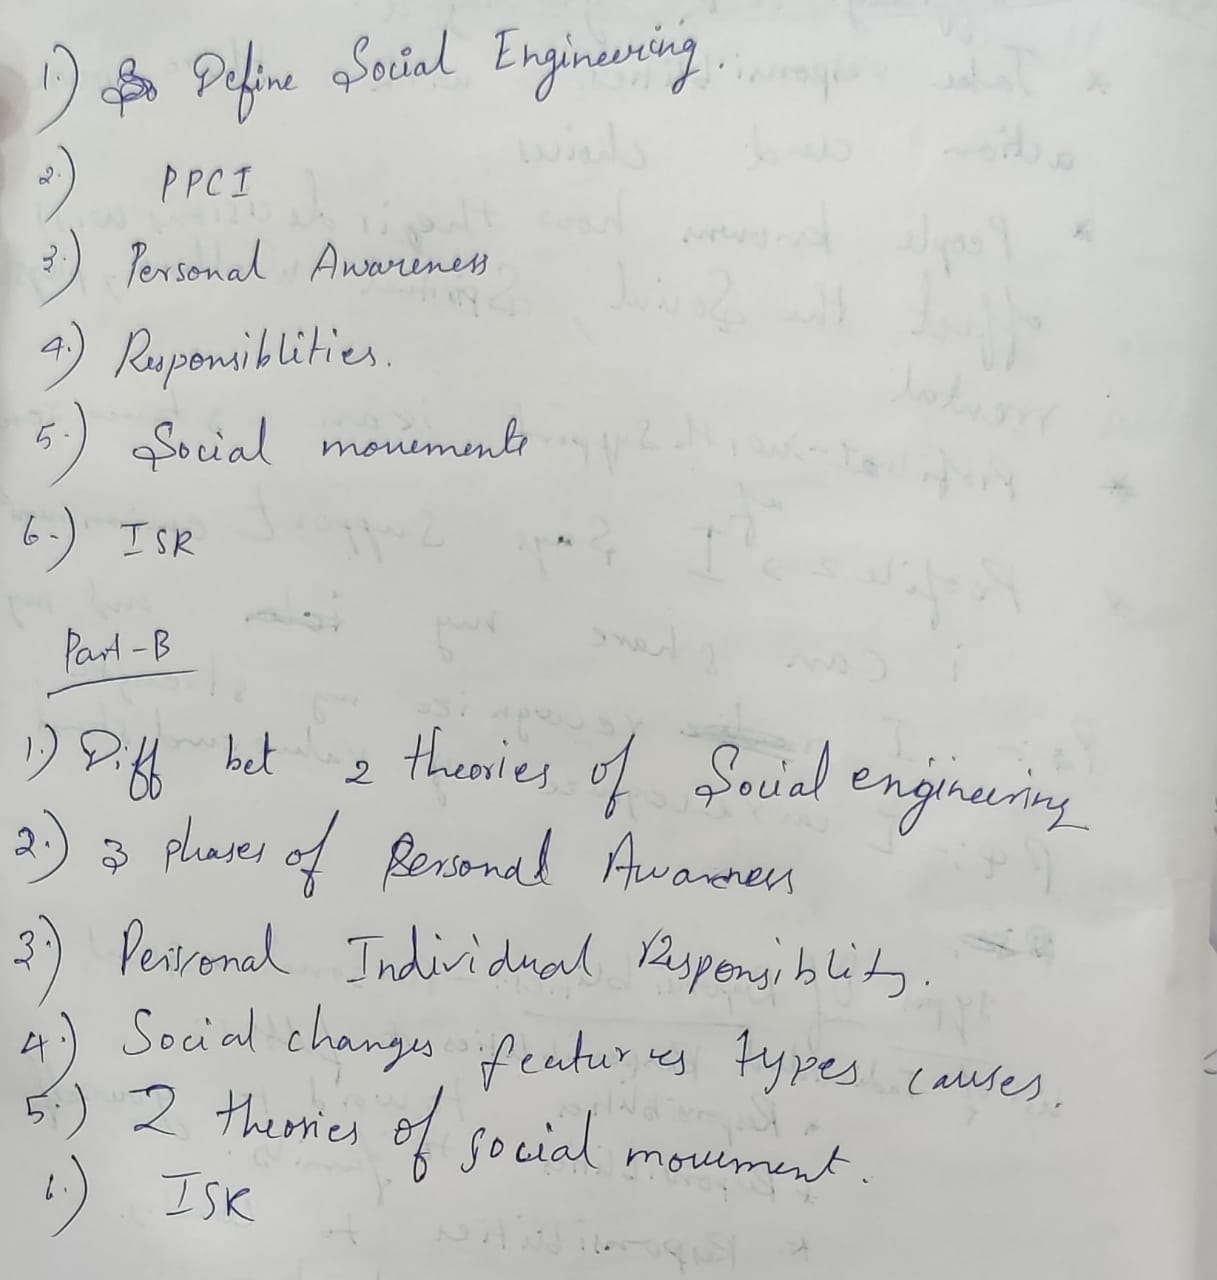 1.) Define Social Engineering.
2.) PPCI
3.) Personal Awareness
4.) Responsiblities.
5.) Social movements
6.) ISR
Part-B
1.) Diff bet 2 theories of Social engineering
2.) 3 phases of Personal Awareness
3.) Personal Individual Responsiblity.
4.) Social changes features types causes.
5.) 2 theories of social movement.
6.) ISR